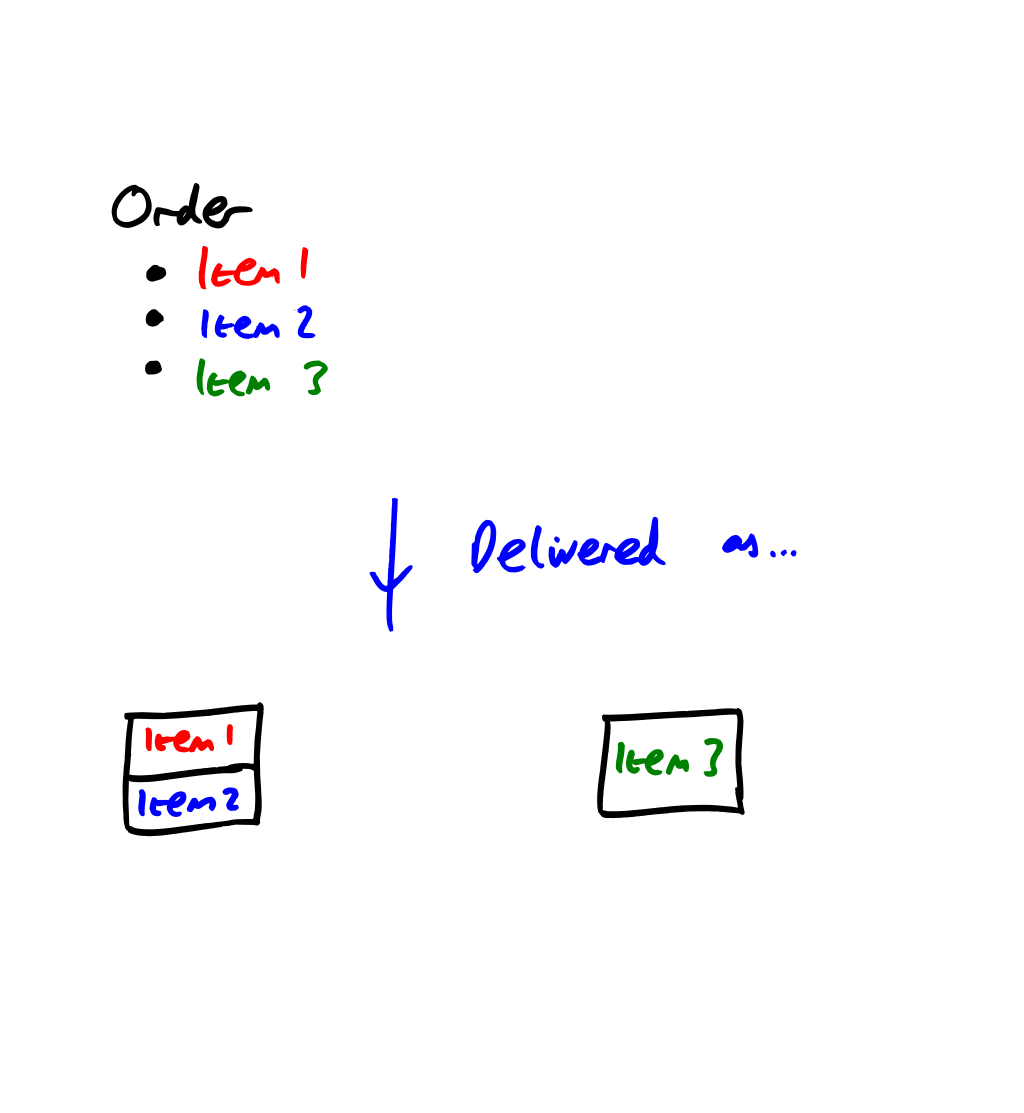 Order
• Item 1
• Item 2
• Item 3
Delivered as...
Item 1
Item 2
Item 3